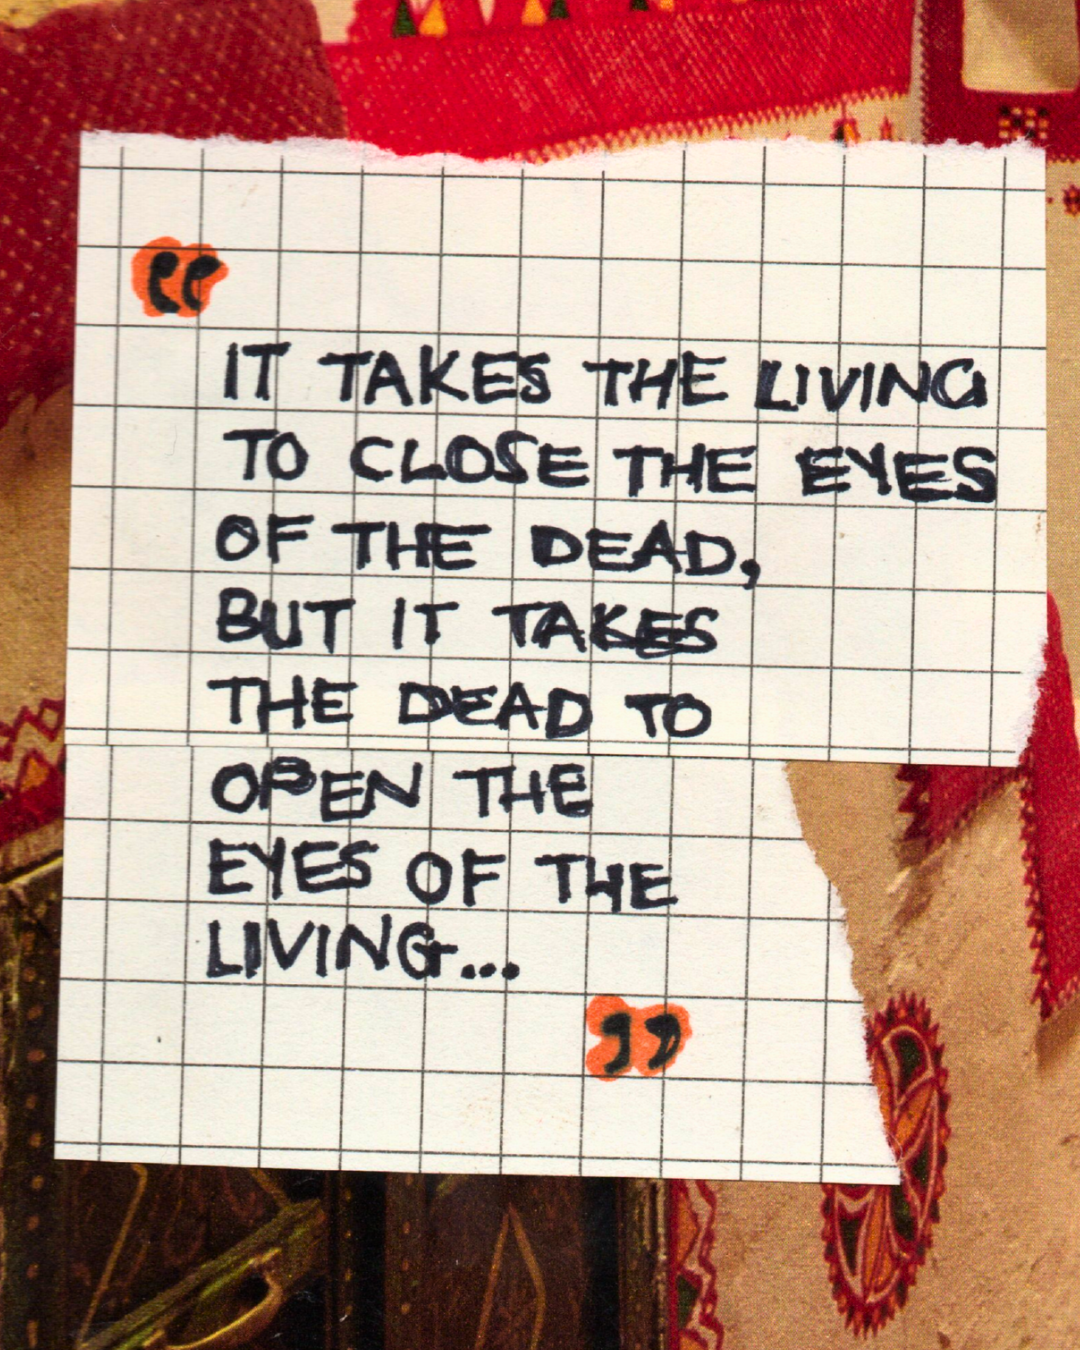 “
IT TAKES THE LIVING
TO CLOSE THE EYES
OF THE DEAD,
BUT IT TAKES
THE DEAD TO
OPEN THE
EYES OF THE
LIVING...
”